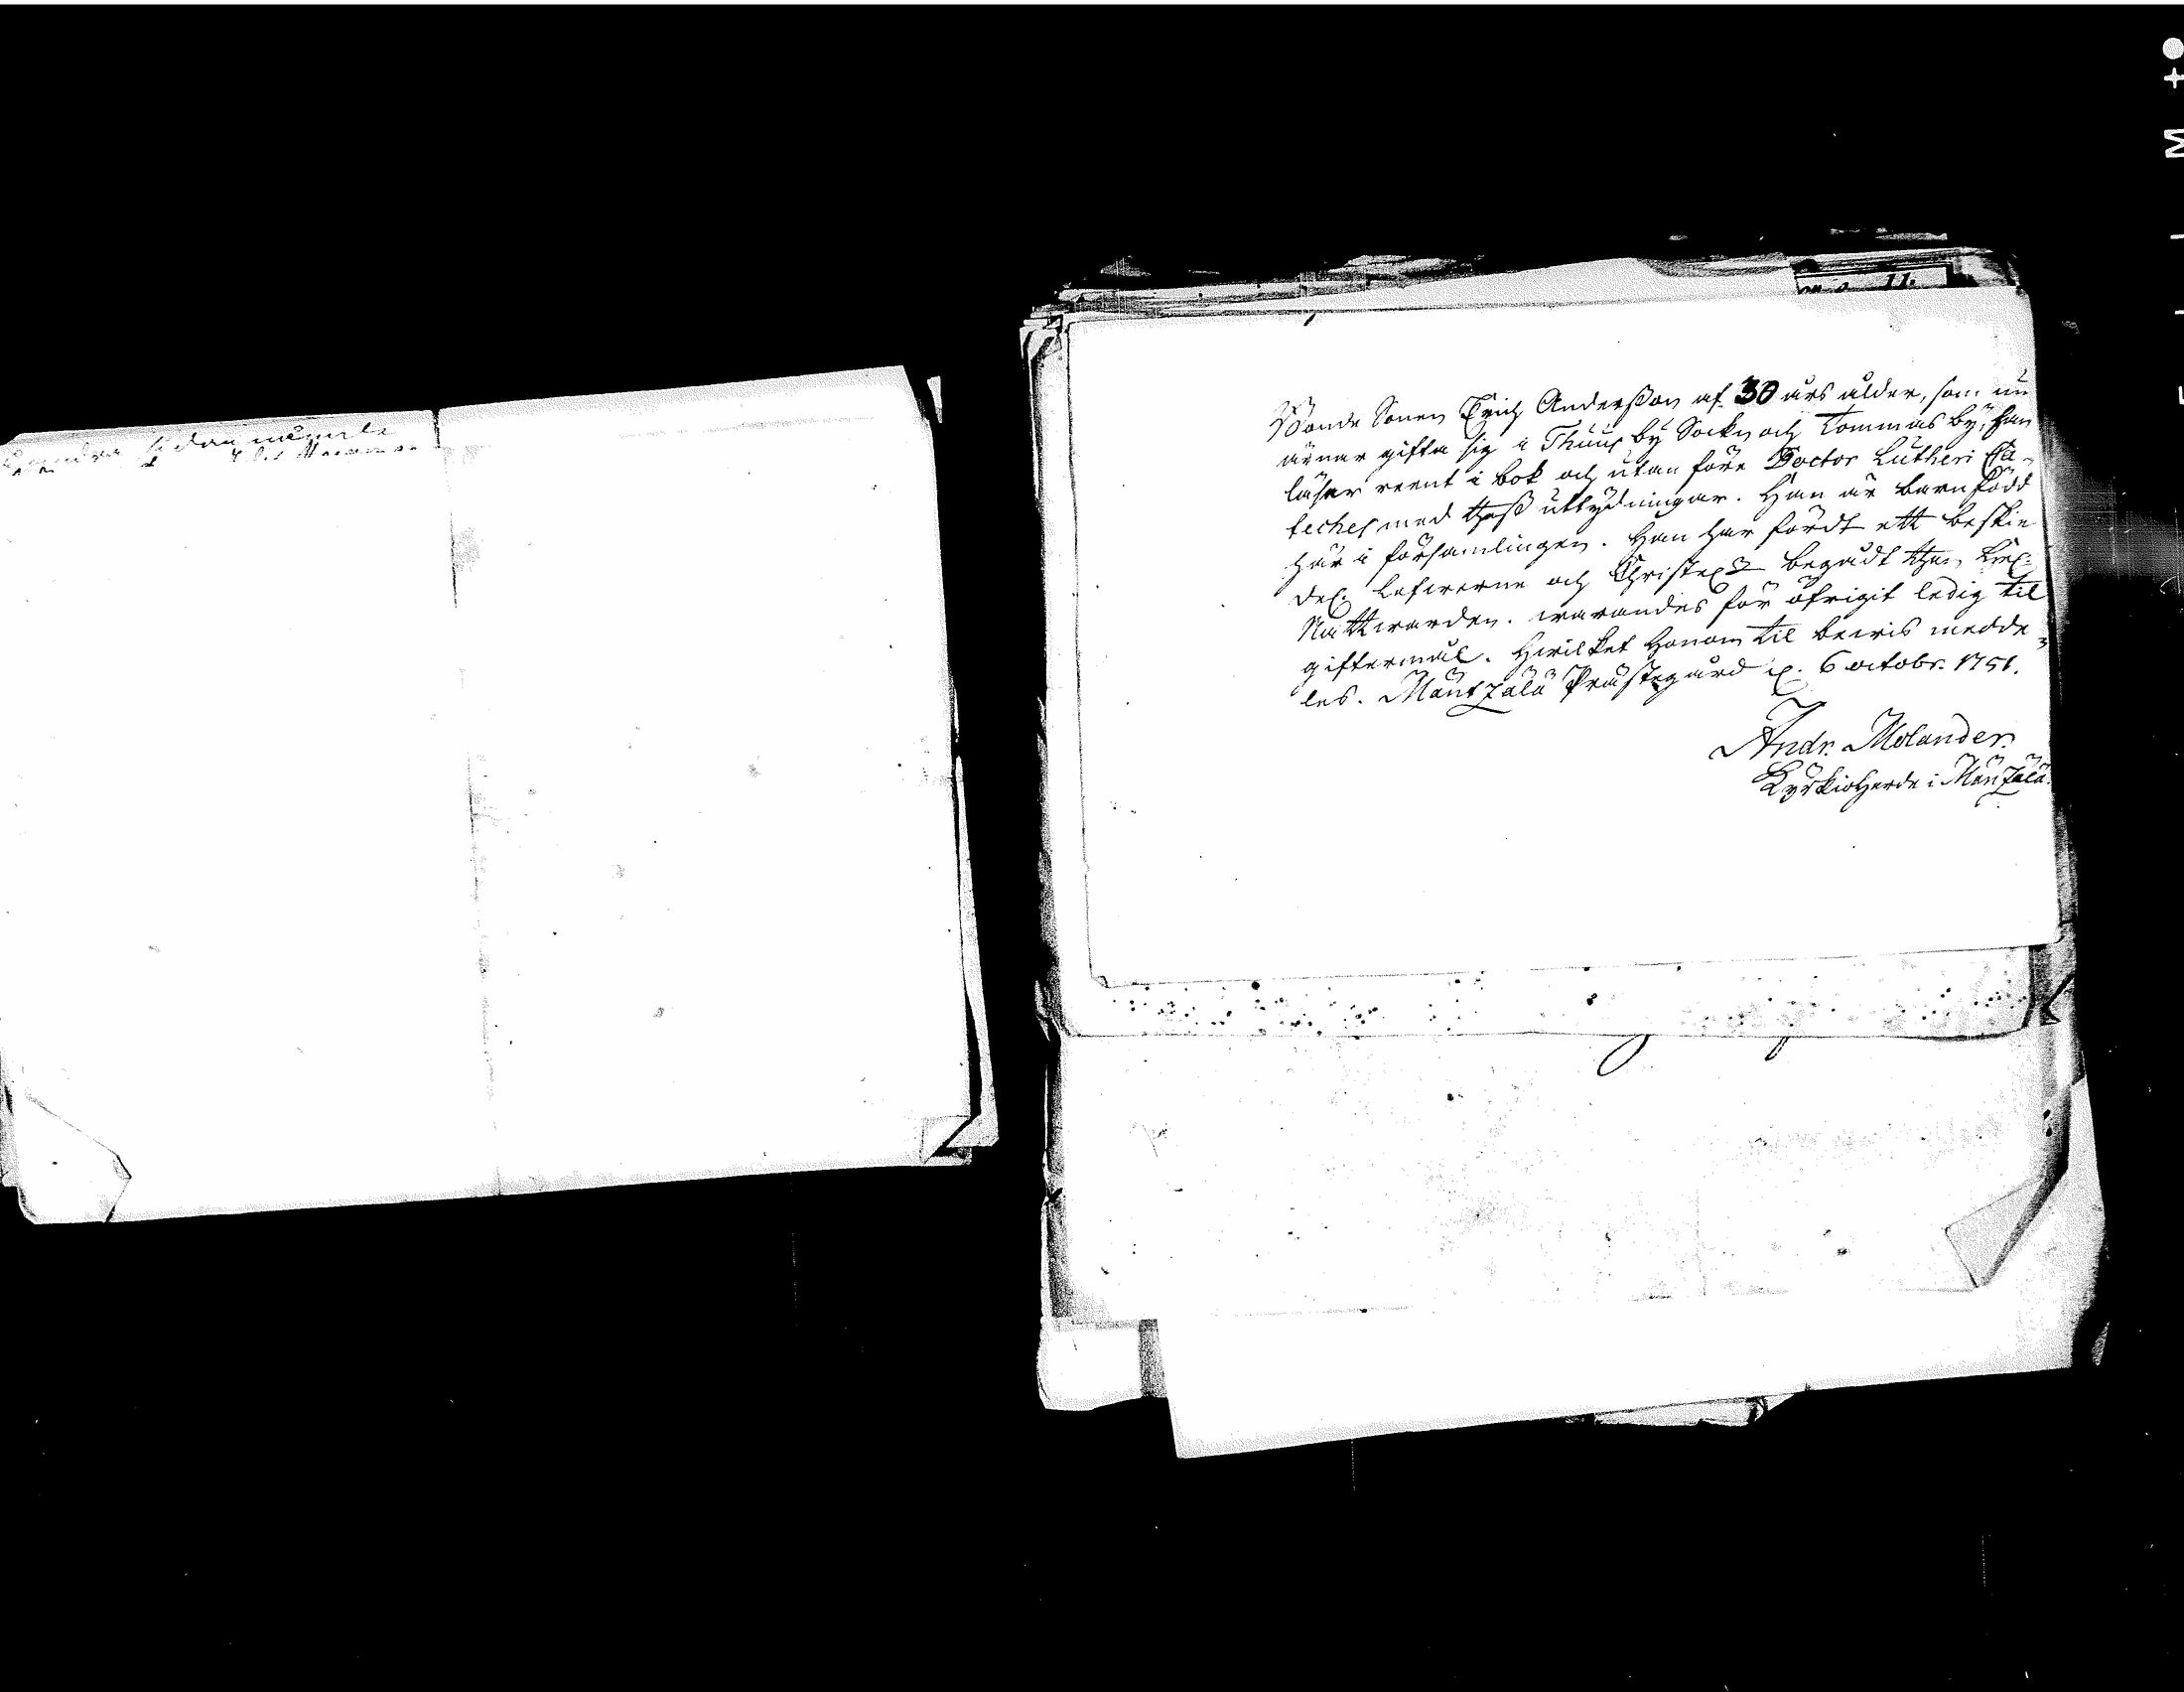 Bonde Sonen Erich Anderßon af 30 års ålder, som nu
ärnar gifta sig i Thuus by Sockn och Tommas by, han
läser reent i bok och utan före Doctor Lutheri Ca-
teches med theß uttydningar. Han är barnfödd
här i församlingen. Han har fördt ett beskie
del. lefwerne och Christel. begådt then
Nattwarden. warandes för öfrigit ledig til
giftermål. Hwilket honom til bewis medde
les. Mäntzälä Prästegård d. 6 octobr. 1751.
Andr. Molander.
Kyrkioherde i Mäntzälä.